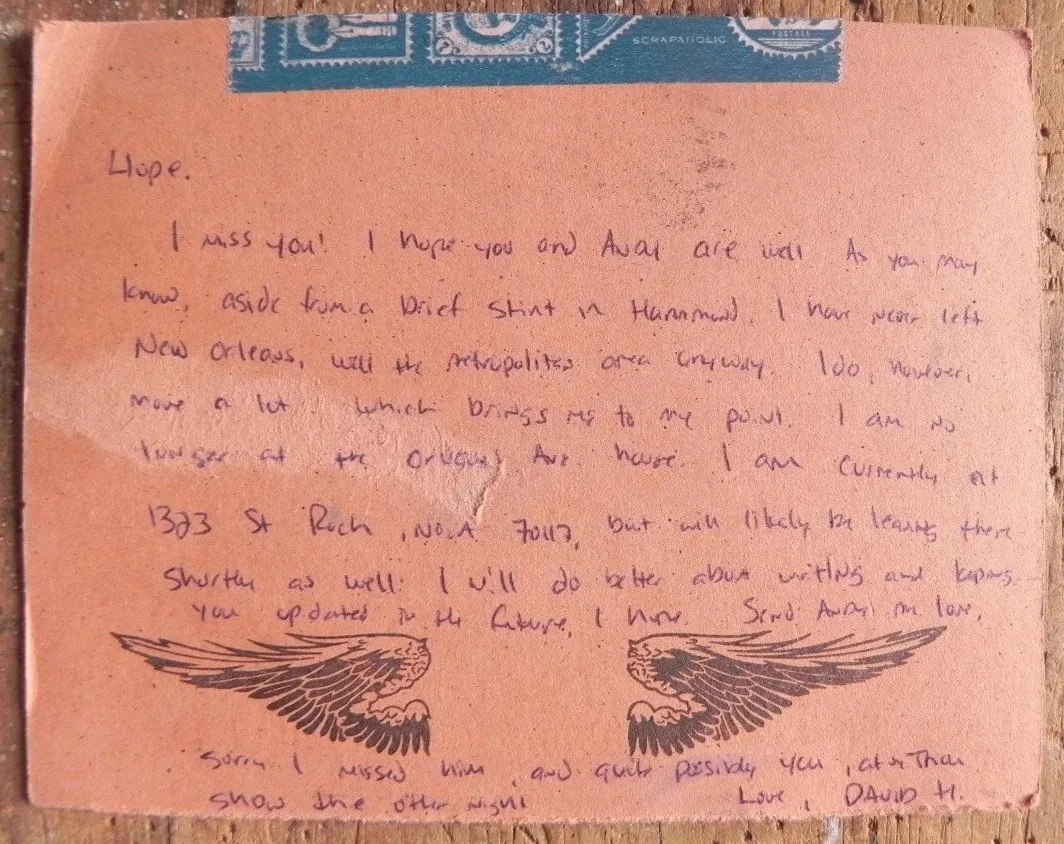 SCRAPAHOLIC
POSTAGE
Hope.
I miss you! I hope you and are well As you may
know, aside from a brief stint in Hammond, I have never left
New Orleans, well the metropolitan area anyway. I do, however,
move a lot which brings me to my point. I am no
longer at the Ave house. I am currently at
1323 St Roch, NOLA 70117, but will likely be leaving there
shortly as well. I will do better about writing and keeping
you updated in the future, I hope. Send my love,
Sorry I missed him, and quite possibly you, at
show the other night
Love, DAVID H.